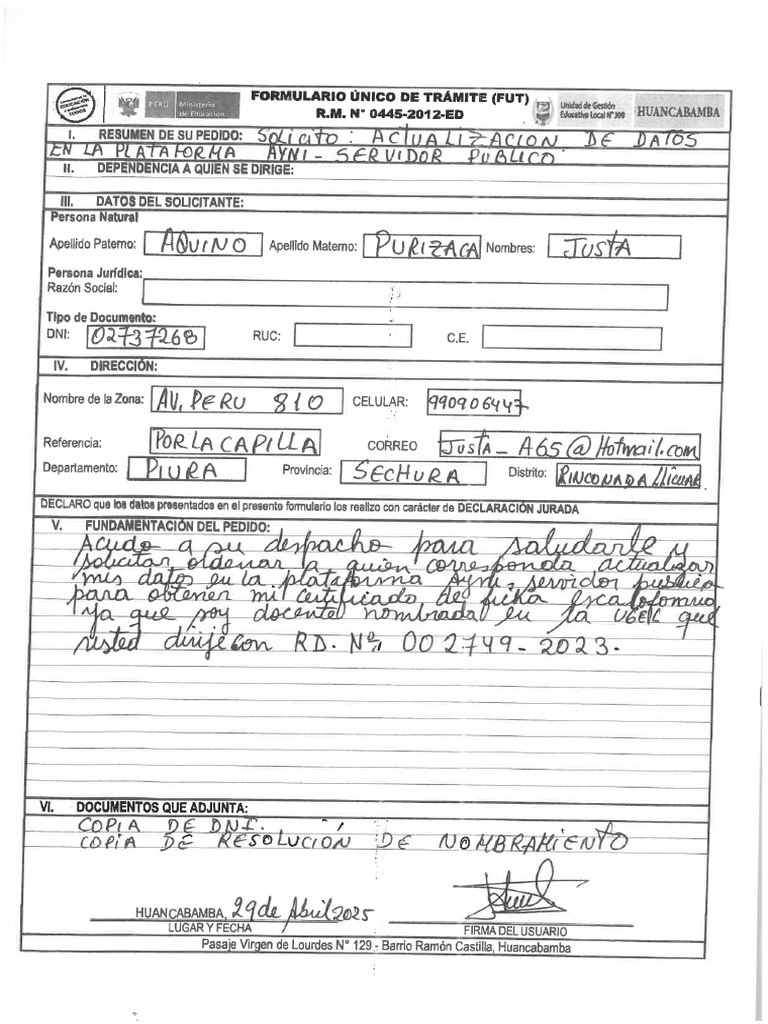 EDUCACIÓN
TODOS
PERÚ Ministerio de Educación
FORMULARIO ÚNICO DE TRÁMITE (FUT)
R.M. N° 0445-2012-ED
Unidad de Gestión
Educativa Local N° 309
HUANCABAMBA
I. RESUMEN DE SU PEDIDO: SOLICITO: ACTUALIZACION DE DATOS
EN LA PLATAFORMA AYNI - SERVIDOR PUBLICO.
II. DEPENDENCIA A QUIEN SE DIRIGE:
III. DATOS DEL SOLICITANTE:
Persona Natural
Apellido Paterno: AQUINO Apellido Materno: PURIZACA Nombres: JUSTA
Persona Jurídica:
Razón Social:
Tipo de Documento:
DNI: 02737268 RUC: C.E.
IV. DIRECCIÓN:
Nombre de la Zona: AV. PERU 810 CELULAR: 990906447
Referencia: POR LA CAPILLA CORREO Justa_A65@Hotmail.com
Departamento: PIURA Provincia: SECHURA Distrito: RINCONADA LLICUAR
DECLARO que los datos presentados en el presente formulario los realizo con carácter de DECLARACIÓN JURADA
V. FUNDAMENTACIÓN DEL PEDIDO:
Acudo a su despacho para saludarle y
solicitar ordenar a quien corresponda actualizar
mis datos en la plataforma Ayni, servidor publico
para obtener mi certificado de ficha escalofonaria
ya que soy docente nombrada en la UGEL que
usted dirije con RD. Nº 002749-2023.
VI. DOCUMENTOS QUE ADJUNTA:
COPIA DE DNI.
COPIA DE RESOLUCION DE NOMBRAMIENTO
HUANCABAMBA, 29 de Abril 2025
LUGAR Y FECHA FIRMA DEL USUARIO
Pasaje Virgen de Lourdes N° 129 - Barrio Ramón Castilla, Huancabamba